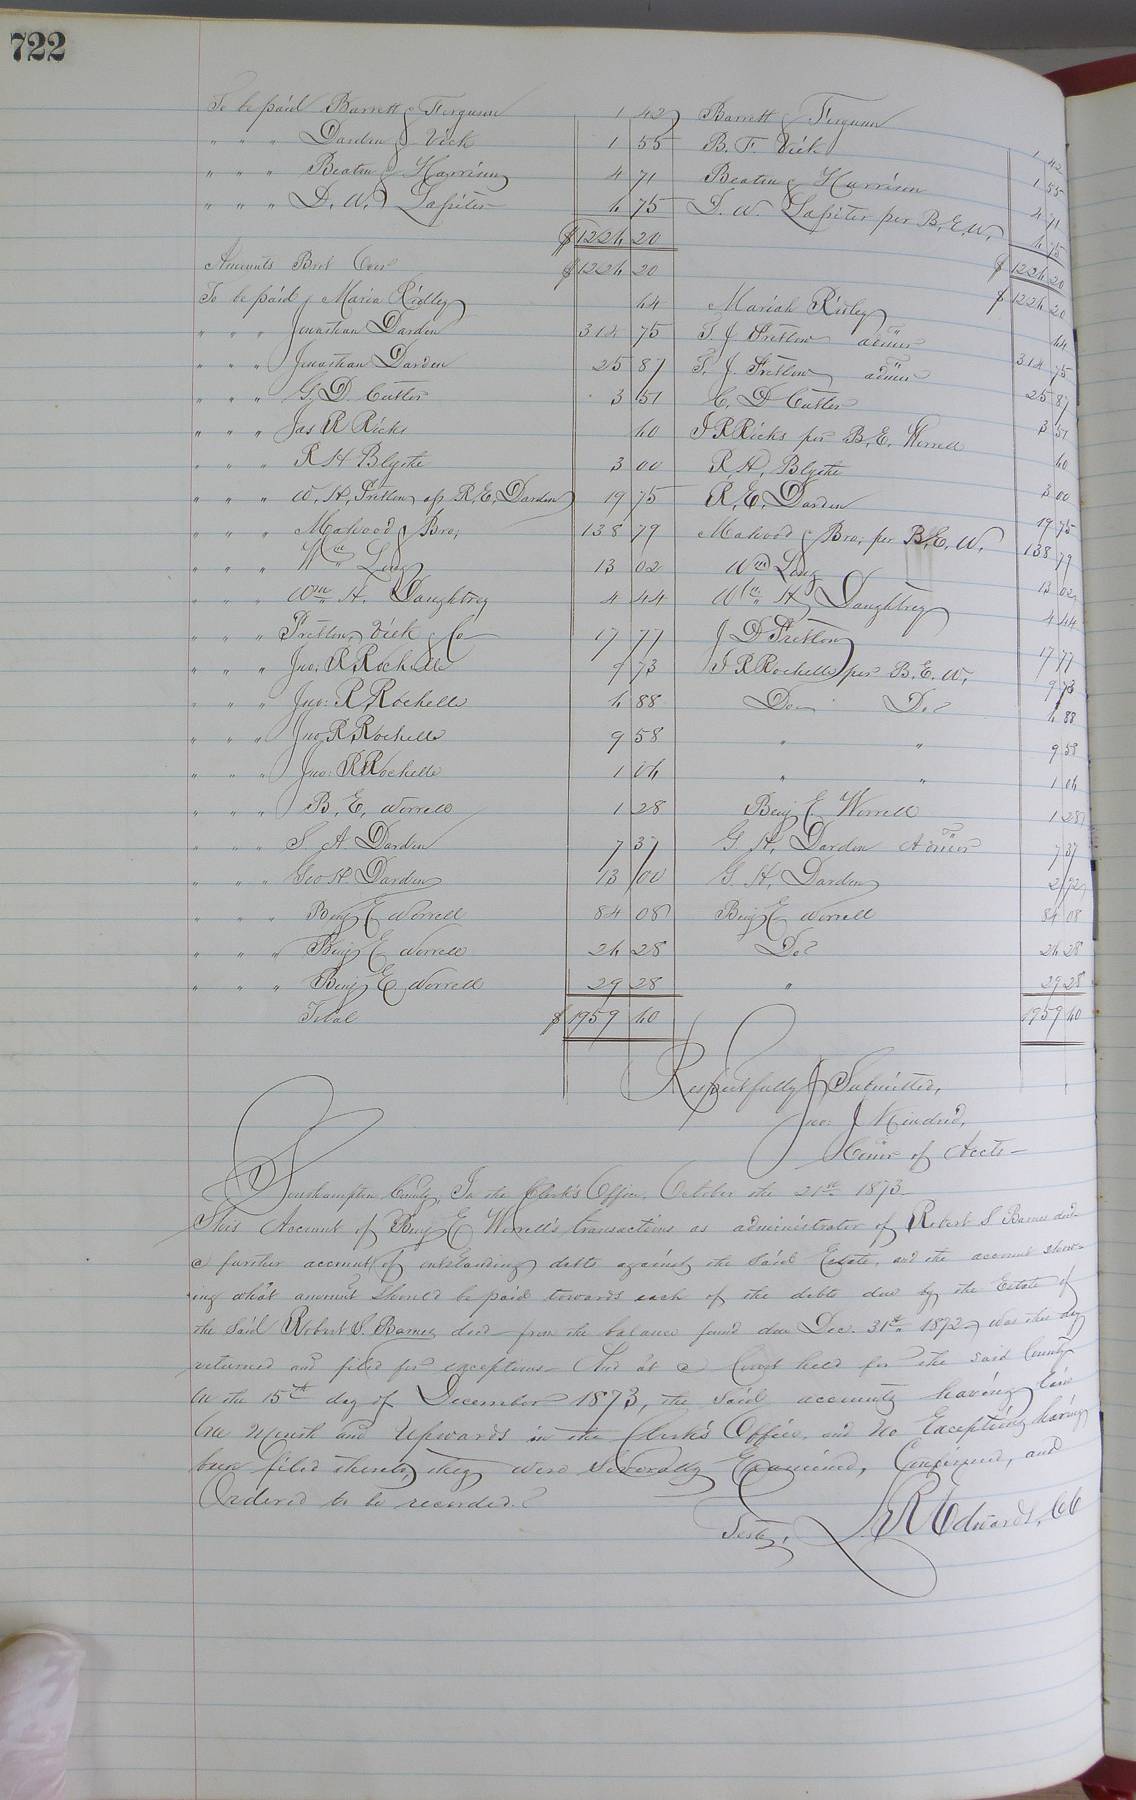 722
To be paid Barrett & Ferguson 1 42 Barrett & Ferguson 1 42
" " " Darden & Vick 1 55 B. F. Vick 1 55
" " " Beaton & Harrison 4 71 Beaton & Harrison 4 71
" " " D. W. Lasiter 6 75 D. W. Lasiter per B. E. W. 6 75
$1226 20 $1226 20
Accounts Brot Over $1226 20 $1226 20
To be paid Maria Ridley 64 Mariah Ridley 64
" " " Jonathan Darden 314 75 T. J. Pretlow admr 314 75
" " " Jonathan Darden 25 87 T. J. Pretlow admr 25 87
" " " G. D. Cutler 3 51 C. D Cutler 3 51
" " " Jas R Ricks 60 J R Ricks per B. E. Worrell 60
" " " R H Blythe 3 00 R. H. Blythe 3 00
" " " W. H. Pretlow ass R. E. Darden 19 75 R. E. Darden 19 75
" " " Mahood & Bro. 138 79 Mahood & Bro. per B. E. W. 138 79
" " " Wm Long 13 02 Wm Long 13 02
" " " Wm H. Daughtrey 4 44 Wm H. Daughtrey 4 44
" " " Pretlow, Vick & Co 17 77 J D Pretlow 17 77
" " " Jno. R. Rochelle 9 73 J R Rochelle per B. E. W. 9 73
" " " Jno. R. Rochelle 6 88 Do Do 6 88
" " " Jno. R. Rochelle 9 58 " " 9 58
" " " Jno. R Rochelle 1 06 " " 1 06
" " " B. E. Worrell 1 28 Benj E Worrell 1 28
" " " S A Darden 7 37 G. H. Darden Admr 7 37
" " " Geo H. Darden 13 00 G. H. Darden
" " " Benj E Worrell 84 08 Benj E Worrell 84 08
" " " Benj E Worrell 26 28 Do 26 28
" " " Benj E Worrell 29 28 " 29 28
Total $1959 60 1959 60
Respectfully Submitted,
Jno. J Kindred,
Comr of Accts—
Southampton County, In the Clerk's Office, October the 21st 1873—
This Account of Benj E Worrell's transactions as administrator of Robert S Barnes decd—
a further account of outstanding debts against the said Estate, and the account show-
ing what amount should be paid towards each of the debts due by the Estate of
the said Robert S. Barnes decd from the balance found due Dec. 31st 1872, was this day
returned and filed for exceptions— And at a Court held for the said County
on the 15th day of December 1873, the said accounts having lain
One Month and Upwards in the Clerk's Office, and No Exceptions having
been filed thereto, they were severally Examined, Confirmed, and
Ordered to be recorded.
Teste, L R Edwards, CC